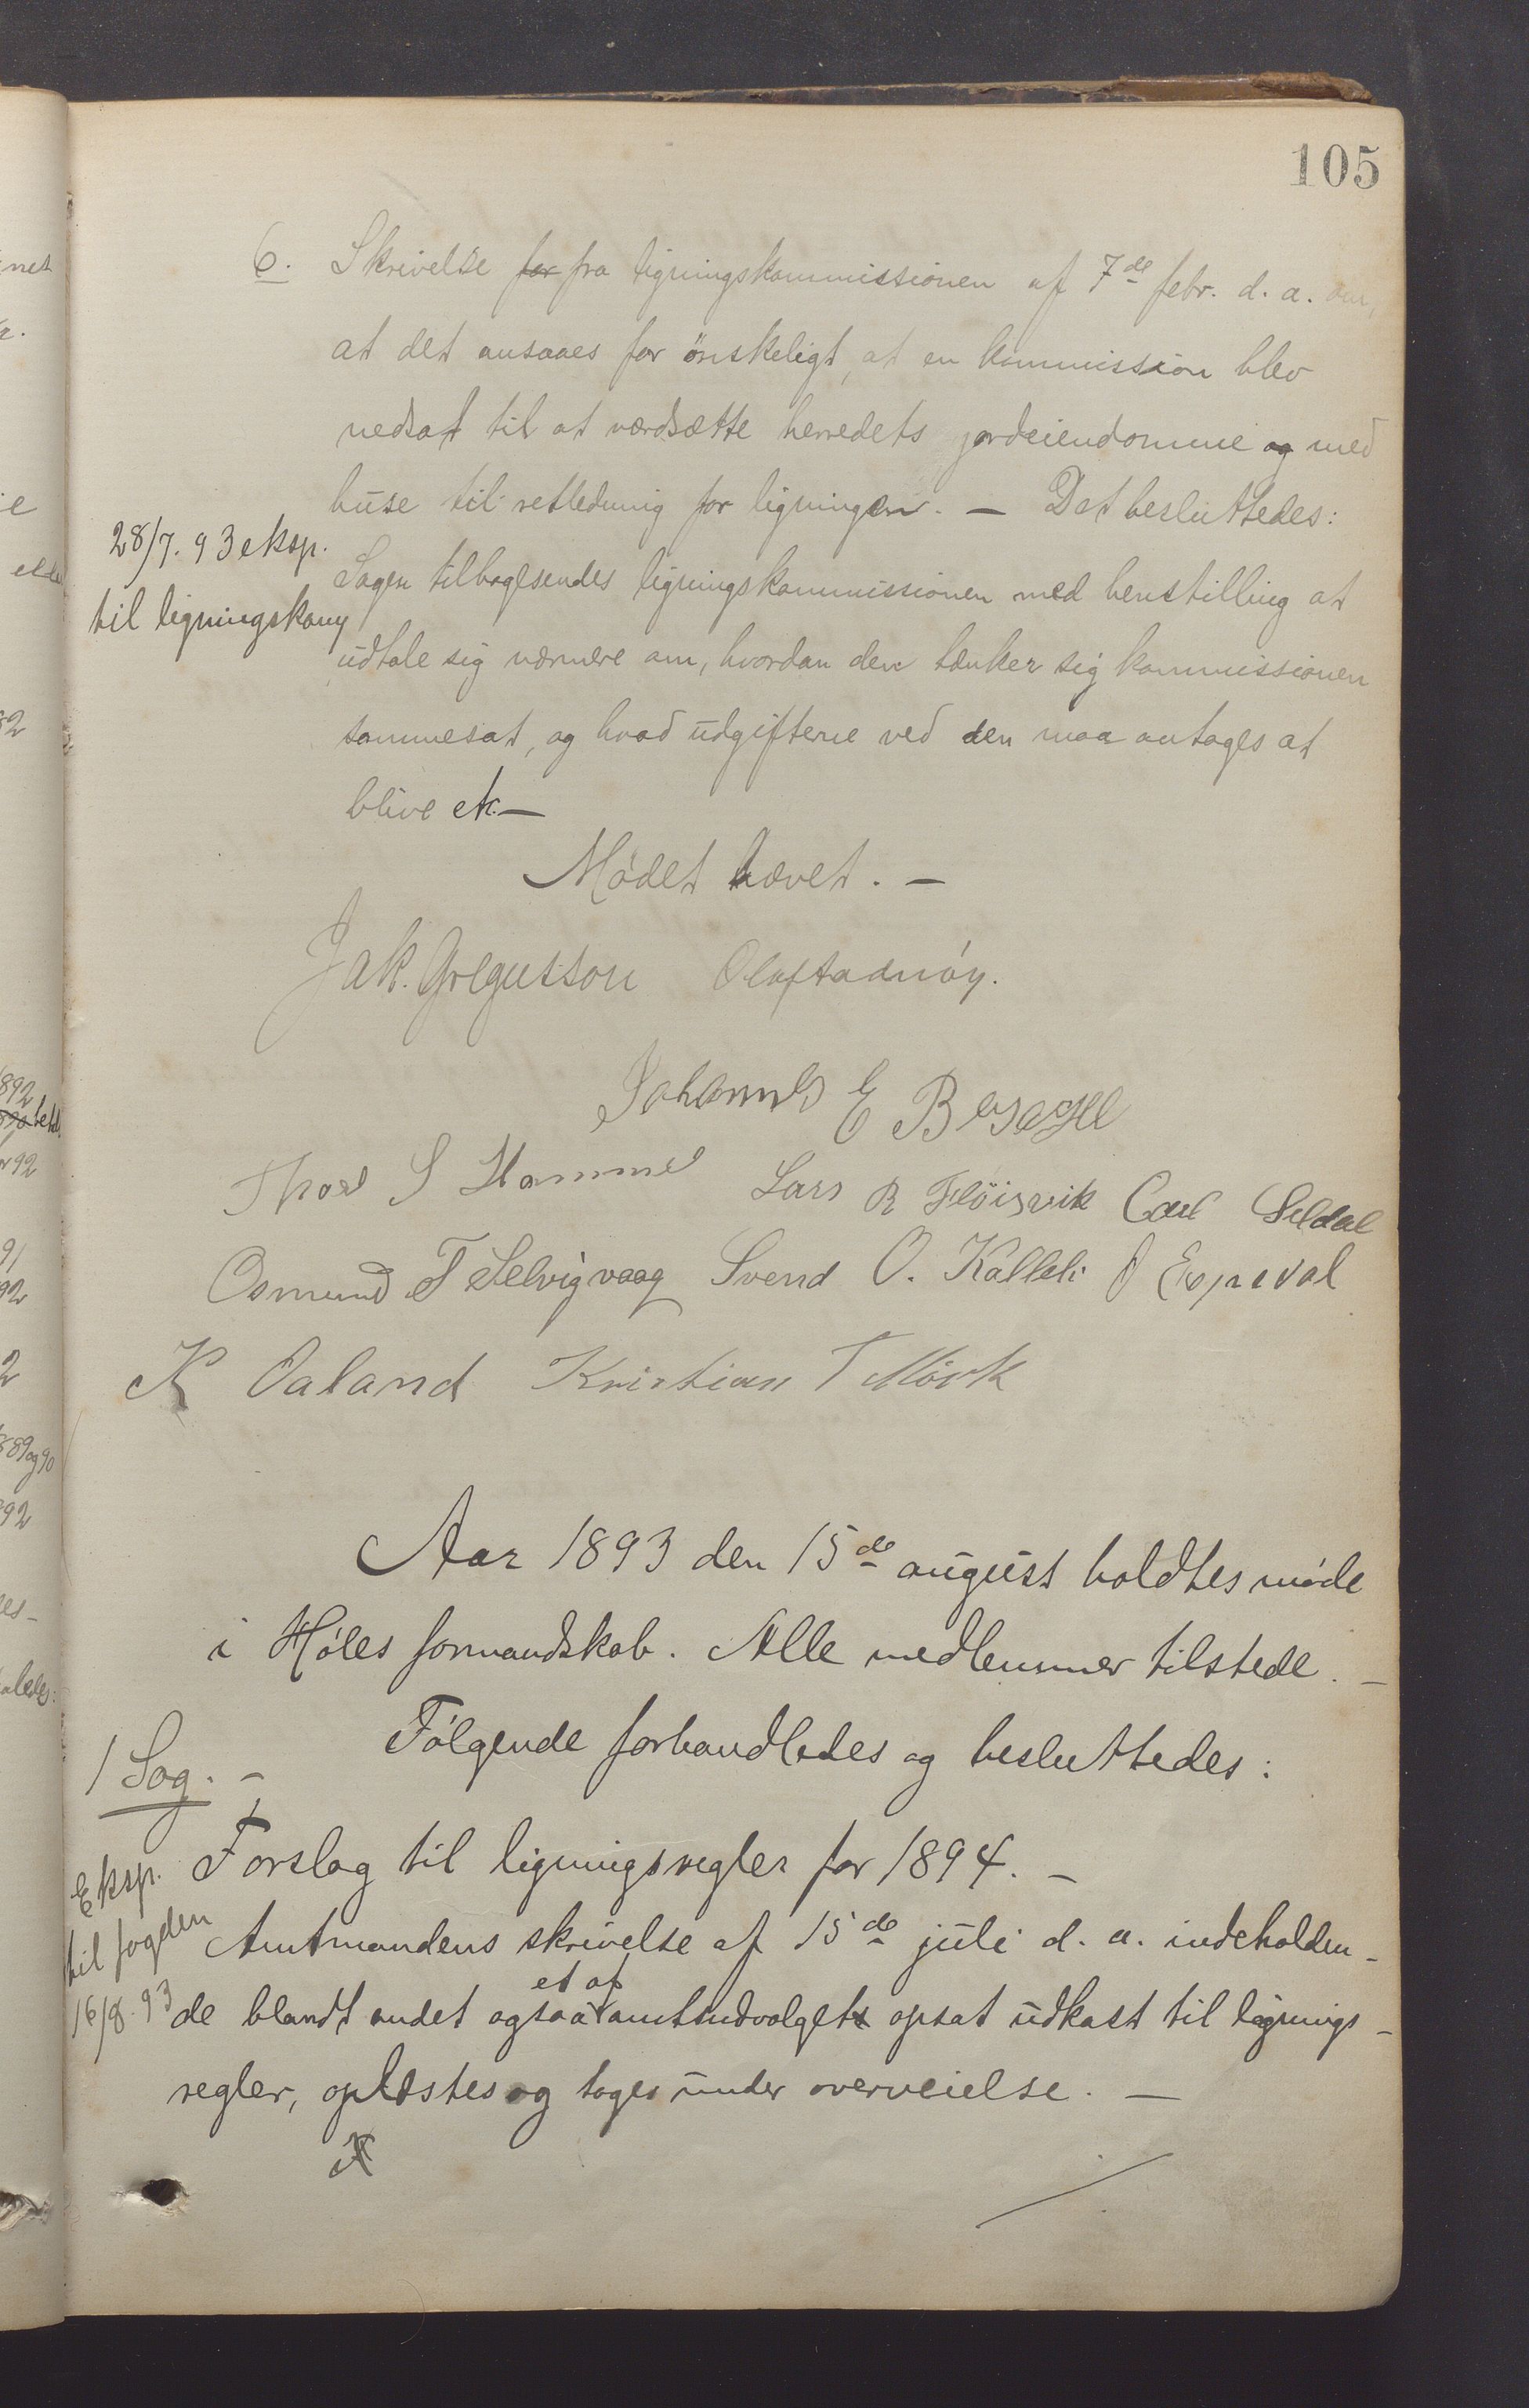 105
6. Skrivelse for fra ligningskommissionen af 7de febr. d. a. om,
at det ansaaes for ønskeligt, at en kommission blev
nedsat til at værdsætte herredets jordeiendomme og med
huse til retledning for ligningen. — Det besluttedes:
28/7. 93 eksp.
til ligningskom
Sagen tilbagesendes ligningskommissionen med henstilling at
udtale sig nærmere om, hvordan den tænker sig kommissionen
sammesat, og hvad udgifterne ved den maa antages at
blive etc. —
Mødet hævet. —
Jak. Gregusson Olaf Tadnøy.
Johannes E
Thore S Hammel Lars R Fløisvik Carl Seldal
Osmund T Selvigvaag Svend O. Kalleli O Espedal
K Oaland Kristian T Mørk
Aar 1893 den 15de august holdtes møde
i Høles formandskab. Alle medlemmer tilstede. —
Følgende forhandledes og besluttedes:
1 Sag. —
Forslag til ligningsregler for 1894. —
Eksp.
til fogden
16/8. 93
Amtmandens skrivelse af 15de juli d. a. indeholden-
et af
de blandt andet ogsaa amtsudvalget opsat udkast til lignings-
regler, oplæstes og toges under overveielse. —